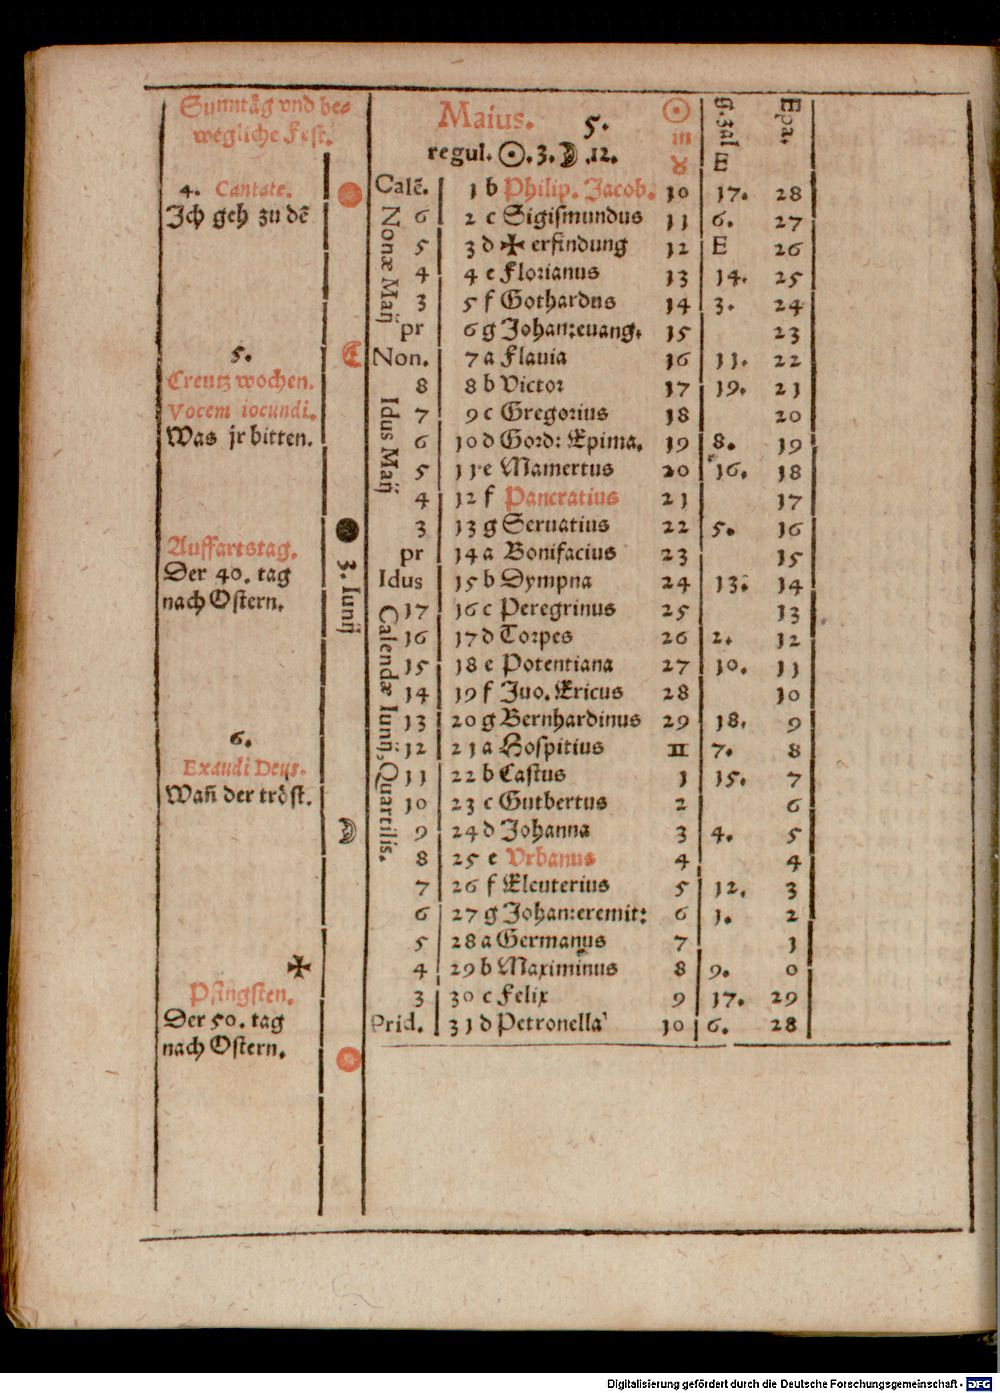 Sunntåg vnd be⸗
wegliche Fest.
4. Cantate.
Jch geh zu dē
5.
Creutz wochen.
Vocem iocundi.
Was jr bitten.
Auffartstag.
Der 40. tag
nach Ostern.
6.
Exaudi Deus.
Wañ der trőst.
✠
Pfingsten.
Der 50. tag
nach Ostern.
3. Iunij
Maius. 5.
regul. ☉. 3. ☽ .12.
☉ in ♉
g. zal E
Epa.
Nonæ Maij
Idus Maij
Calendæ Iunij, Quartilis.
Calē. 1 b Philip. Jacob. 10 17. 28
6 2 c Sigismundus 11 6. 27
5 3 d ✠ erfindung 12 E 26
4 4 e Florianus 13 14. 25
3 5 f Gothardus 14 3. 24
pr 6 g Johan:euang. 15 23
Non. 7 a Flauia 16 11. 22
8 8 b Victor 17 19. 21
7 9 c Gregorius 18 20
6 10 d Gord: Epima. 19 8. 19
5 11 e Mamertus 20 16. 18
4 12 f Pancratius 21 17
3 13 g Seruatius 22 5. 16
pr 14 a Bonifacius 23 15
Idus 15 b Dympna 24 13. 14
17 16 c Peregrinus 25 13
16 17 d Torpes 26 2. 12
15 18 e Potentiana 27 10. 11
14 19 f Juo. Ericus 28 10
13 20 g Bernhardinus 29 18. 9
12 21 a Hospitius II 7. 8
11 22 b Castus 1 15. 7
10 23 c Gutbertus 2 6
9 24 d Johanna 3 4. 5
8 25 e Vrbanus 4 4
7 26 f Eleuterius 5 12. 3
6 27 g Johan:eremit: 6 1. 2
5 28 a Germanus 7 1
4 29 b Maximinus 8 9. 0
3 30 c Felix 9 17. 29
Prid. 31 d Petronella 10 6. 28
Digitalisierung gefördert durch die Deutsche Forschungsgemeinschaft - DFG